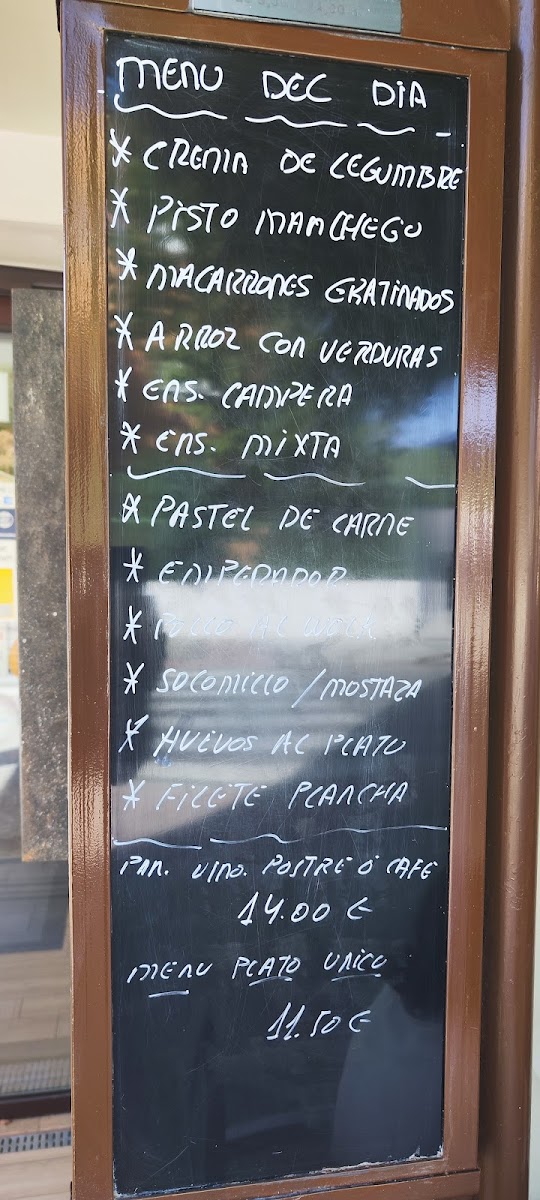 MENU DEL DIA
* CREMA DE LEGUMBRE
* PISTO MANCHEGO
* MACARRONES GRATINADOS
* ARROZ CON VERDURAS
* ENS. CAMPERA
* ENS. MIXTA
* PASTEL DE CARNE
* EMPERADOR
* POLLO AL WOCK
* SOLOMILLO / MOSTAZA
* HUEVOS AL PLATO
* FILETE PLANCHA
PAN. VINO. POSTRE O CAFE
14.00 €
MENU PLATO UNICO
11.50 €